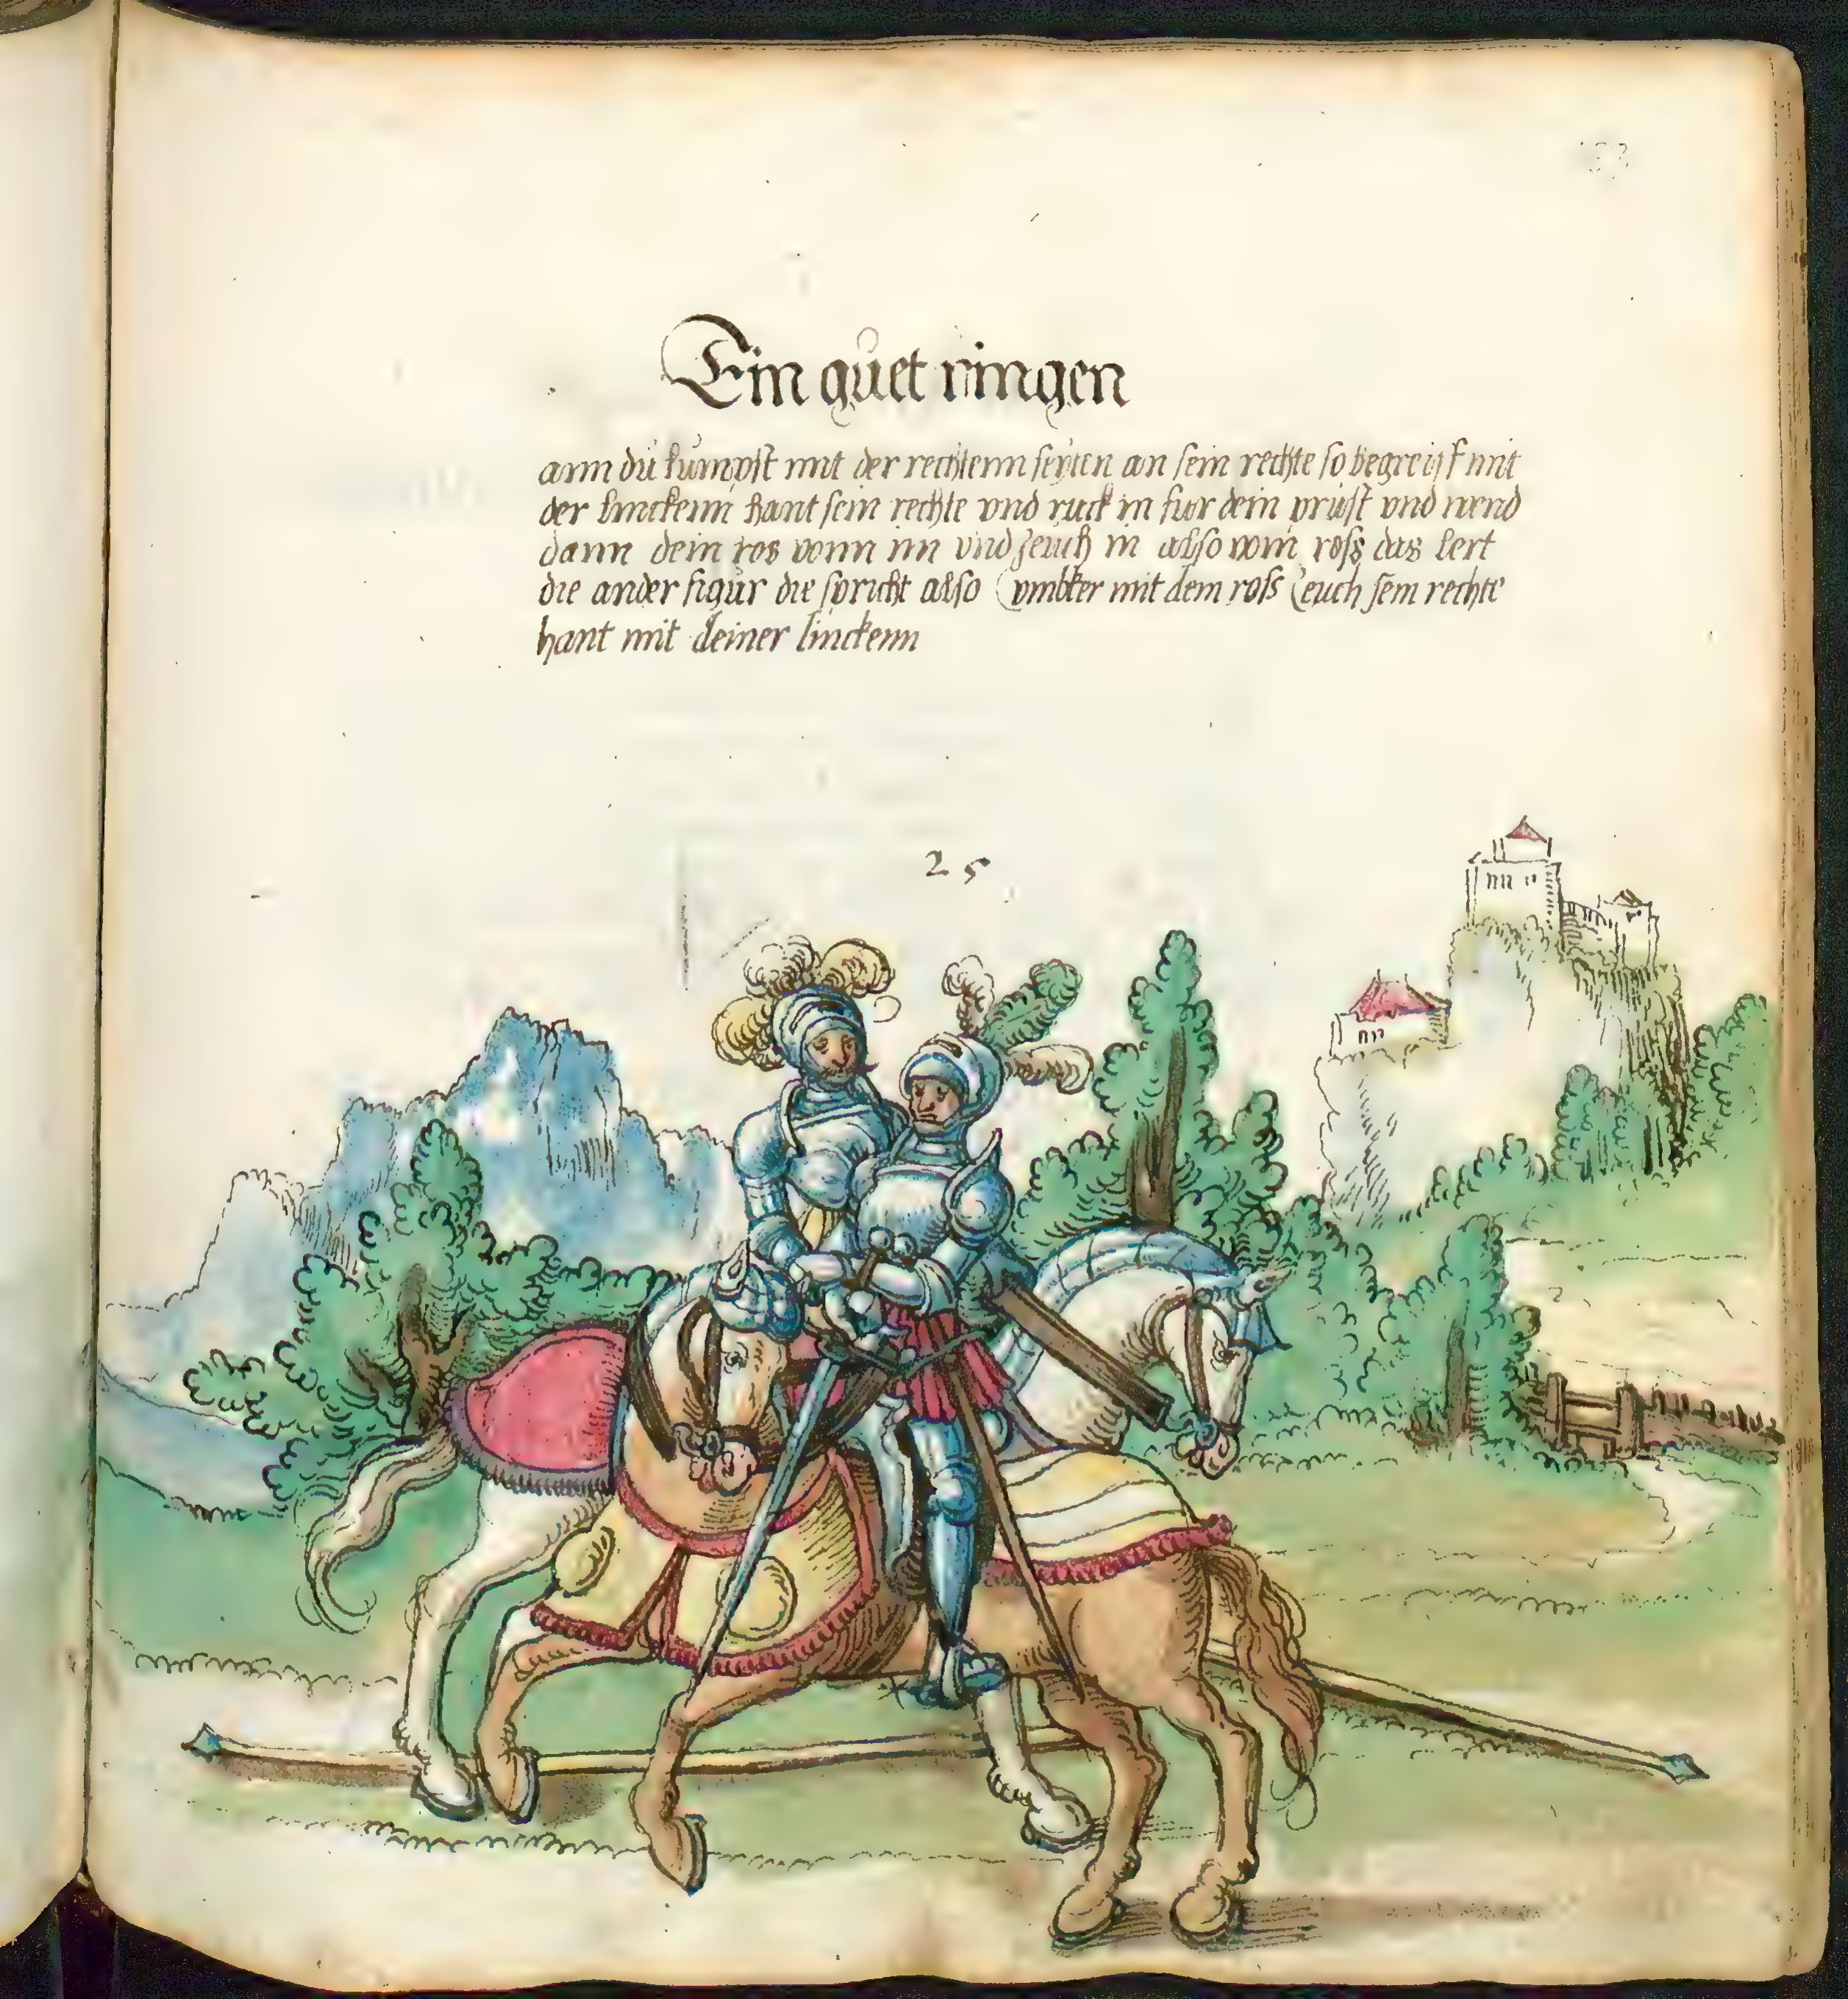 Ein guet ringen
ann du kumpst mit der rechtenn seyten an sein rechte so begreijf mit
der linckenn hant sein rechte vnd ruck in fur dein prust vnd wend
dann dein ros vonn im vnd zeuch in also vom ross das lert
die ander figur die spricht also vmbker mit dem ross zeuch sein rechte
hant mit deiner linckenn
25